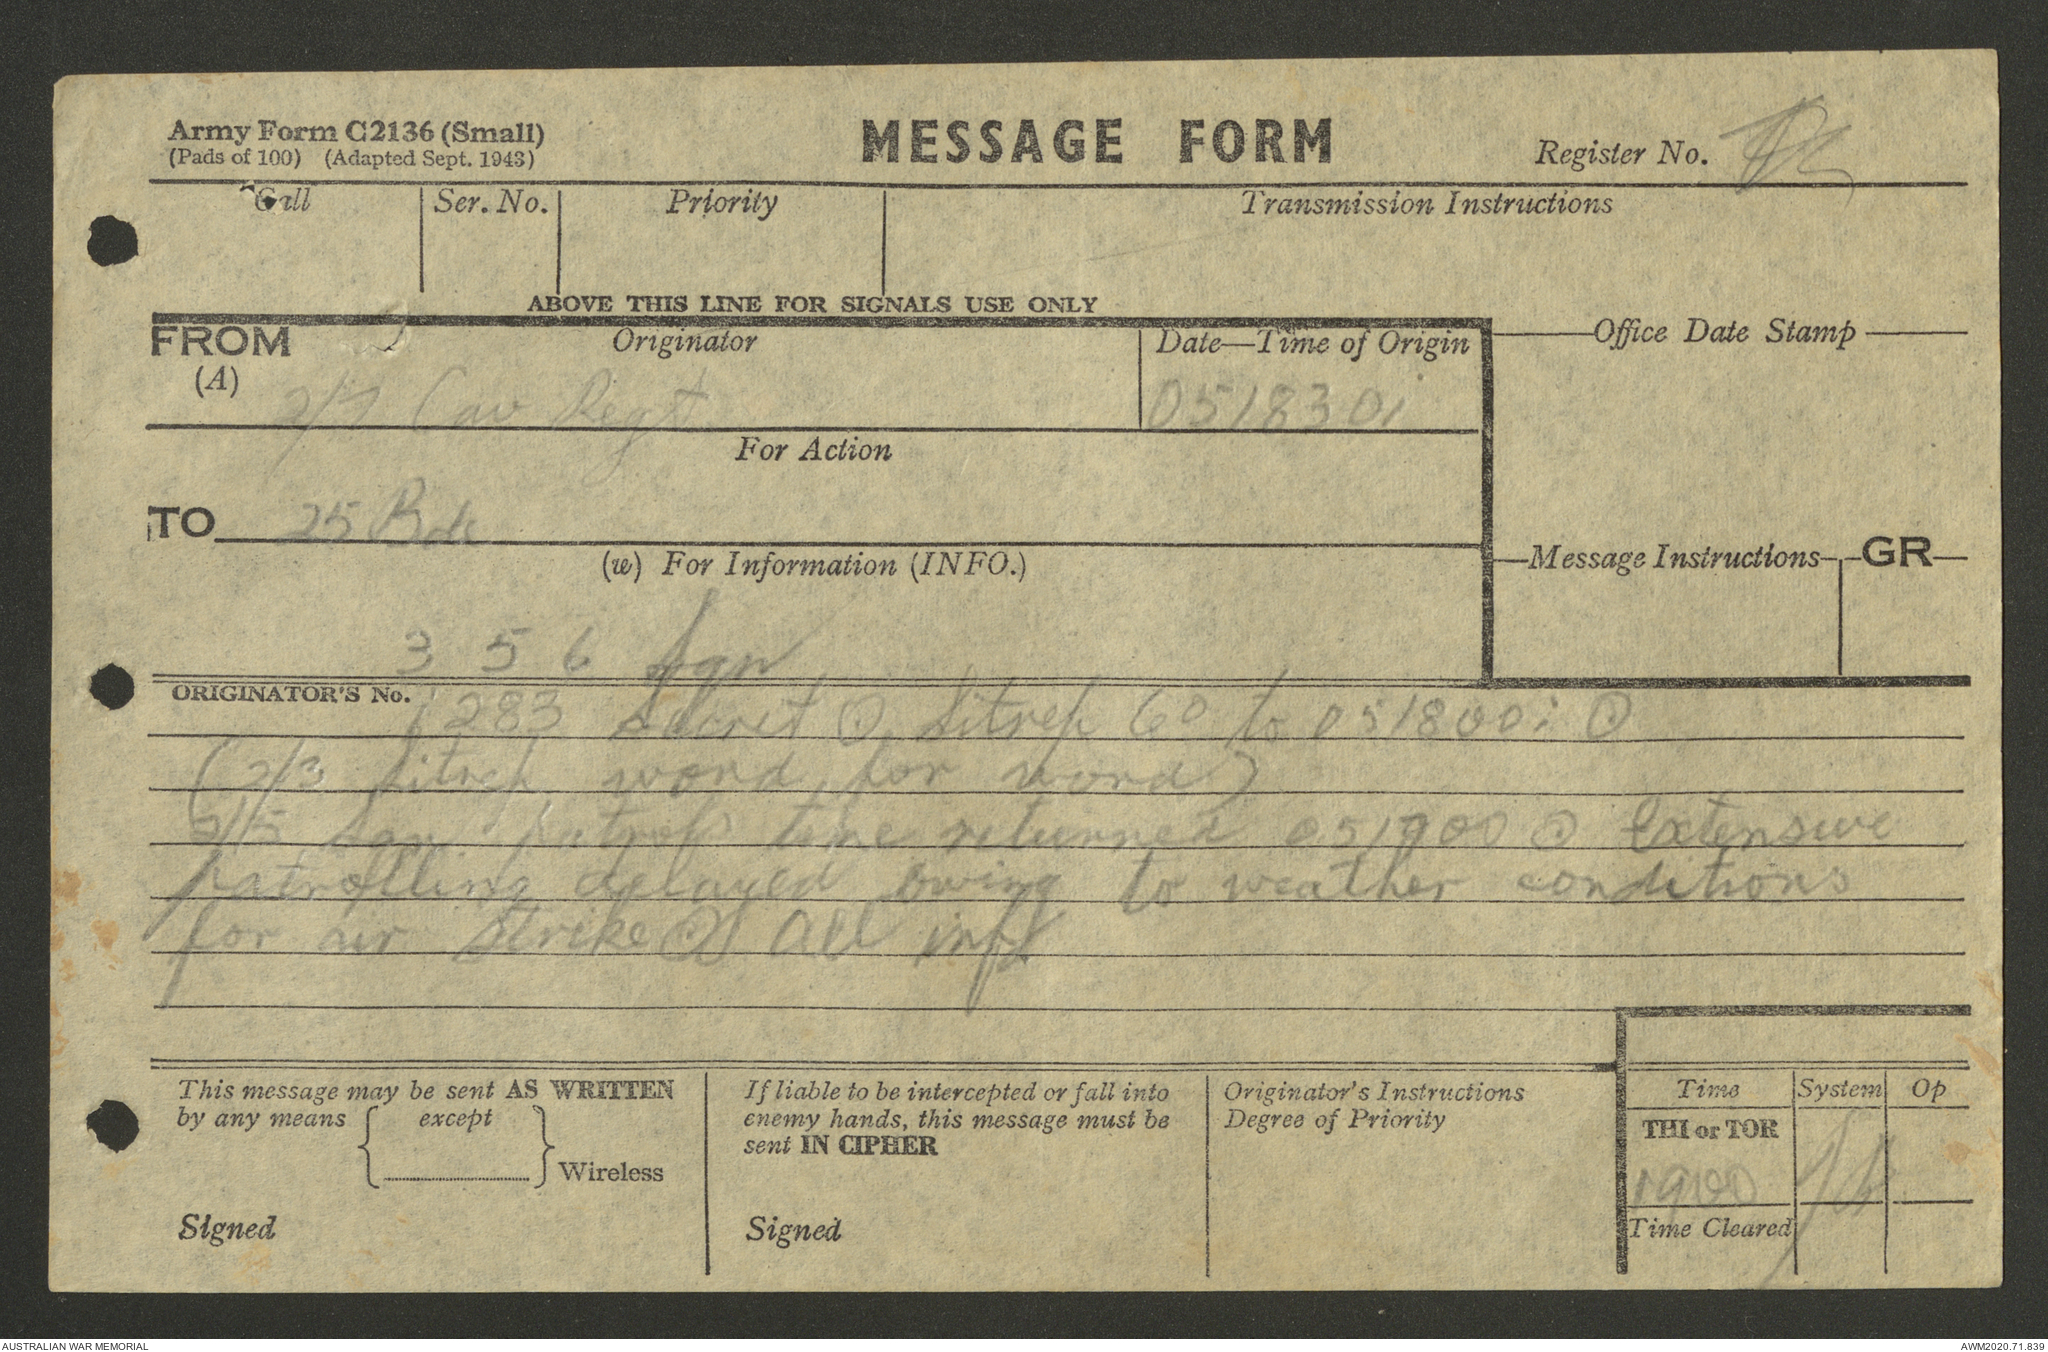 Army Form C2136 (Small)
(Pads of 100) (Adapted Sept. 1943)
MESSAGE FORM
Register No.
Call
Ser. No.
Priority
Transmission Instructions
ABOVE THIS LINE FOR SIGNALS USE ONLY
FROM
(A)
Originator
Date—Time of Origin
Office Date Stamp
2/7 Cav Regt
051830i
For Action
TO
25 Bde
(w) For Information (INFO.)
Message Instructions
GR
3 5 6 Sqn
ORIGINATOR'S No.
1283 Secret ⊙ Sitrep 60 to 051800i ⊙
(2/3 Sitrep word for word)
2/5 Sqn patrol time returned 051700 ⊙ Extensive
patrolling delayed owing to weather conditions
for air strike ⊙ All inft
This message may be sent AS WRITTEN
by any means
except
Wireless
Signed
If liable to be intercepted or fall into
enemy hands, this message must be
sent IN CIPHER
Signed
Originator's Instructions
Degree of Priority
Time
System
Op
THI or TOR
1900
Time Cleared
AUSTRALIAN WAR MEMORIAL
AWM2020.71.839